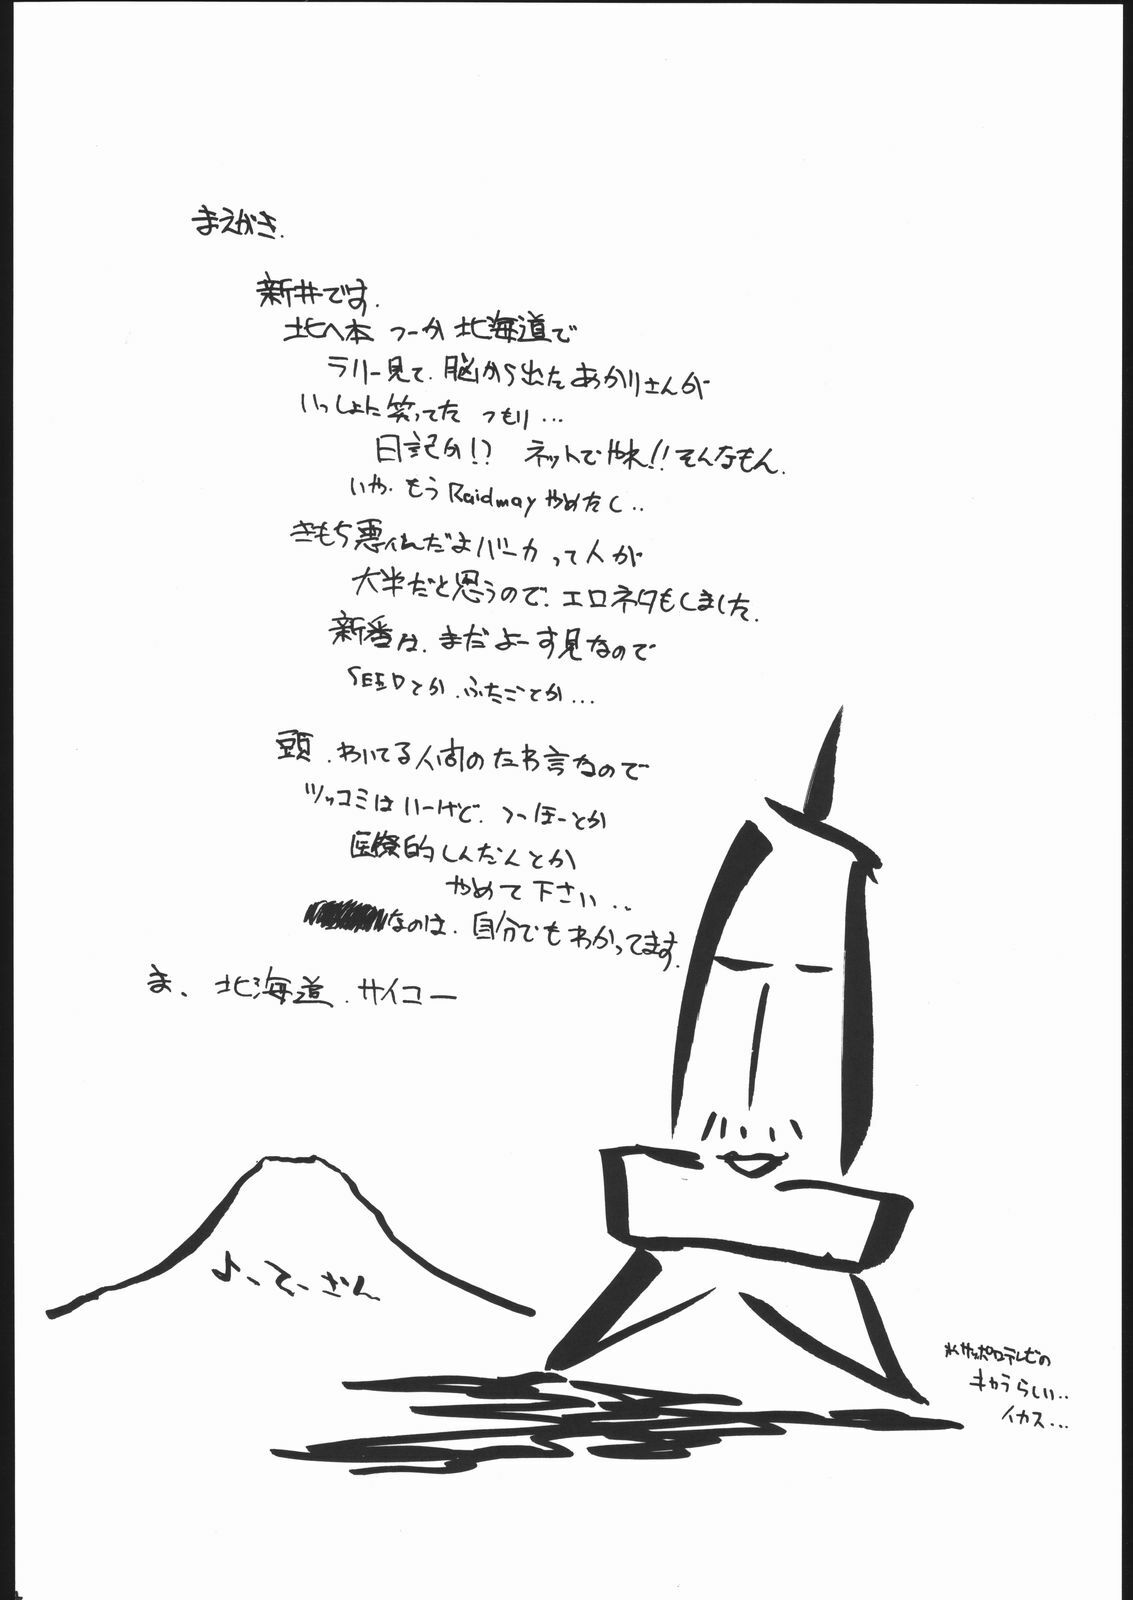 まえがき.
新井です.
北へ本 つーか 北海道で
ラリー見て、脳から出たあかりさんが
いっしょに笑ってた つもり…
日記か!? ネットでやれ!! そんなもん.
いや、もう Raidmay やめたし..
きもち悪ィんだよバーカって人が
大半だと思うので、エロネタもしました.
新番は、まだよーす見なので
SEEDとか、ふたごとか…
頭、わいてる人間のたわ言なので
ツッコミはいーけど、つっほーとか
医療的しんだんとか
やめて下さい..
なのは、自分でもわかってます.
ま、北海道、サイコー
よーてーざん
※サッポロテレビの
キャラらしい..
イカス…